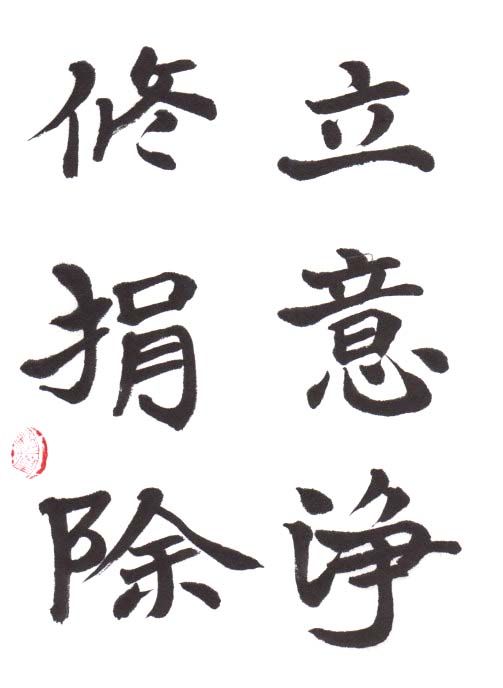 立意浄
修捐除